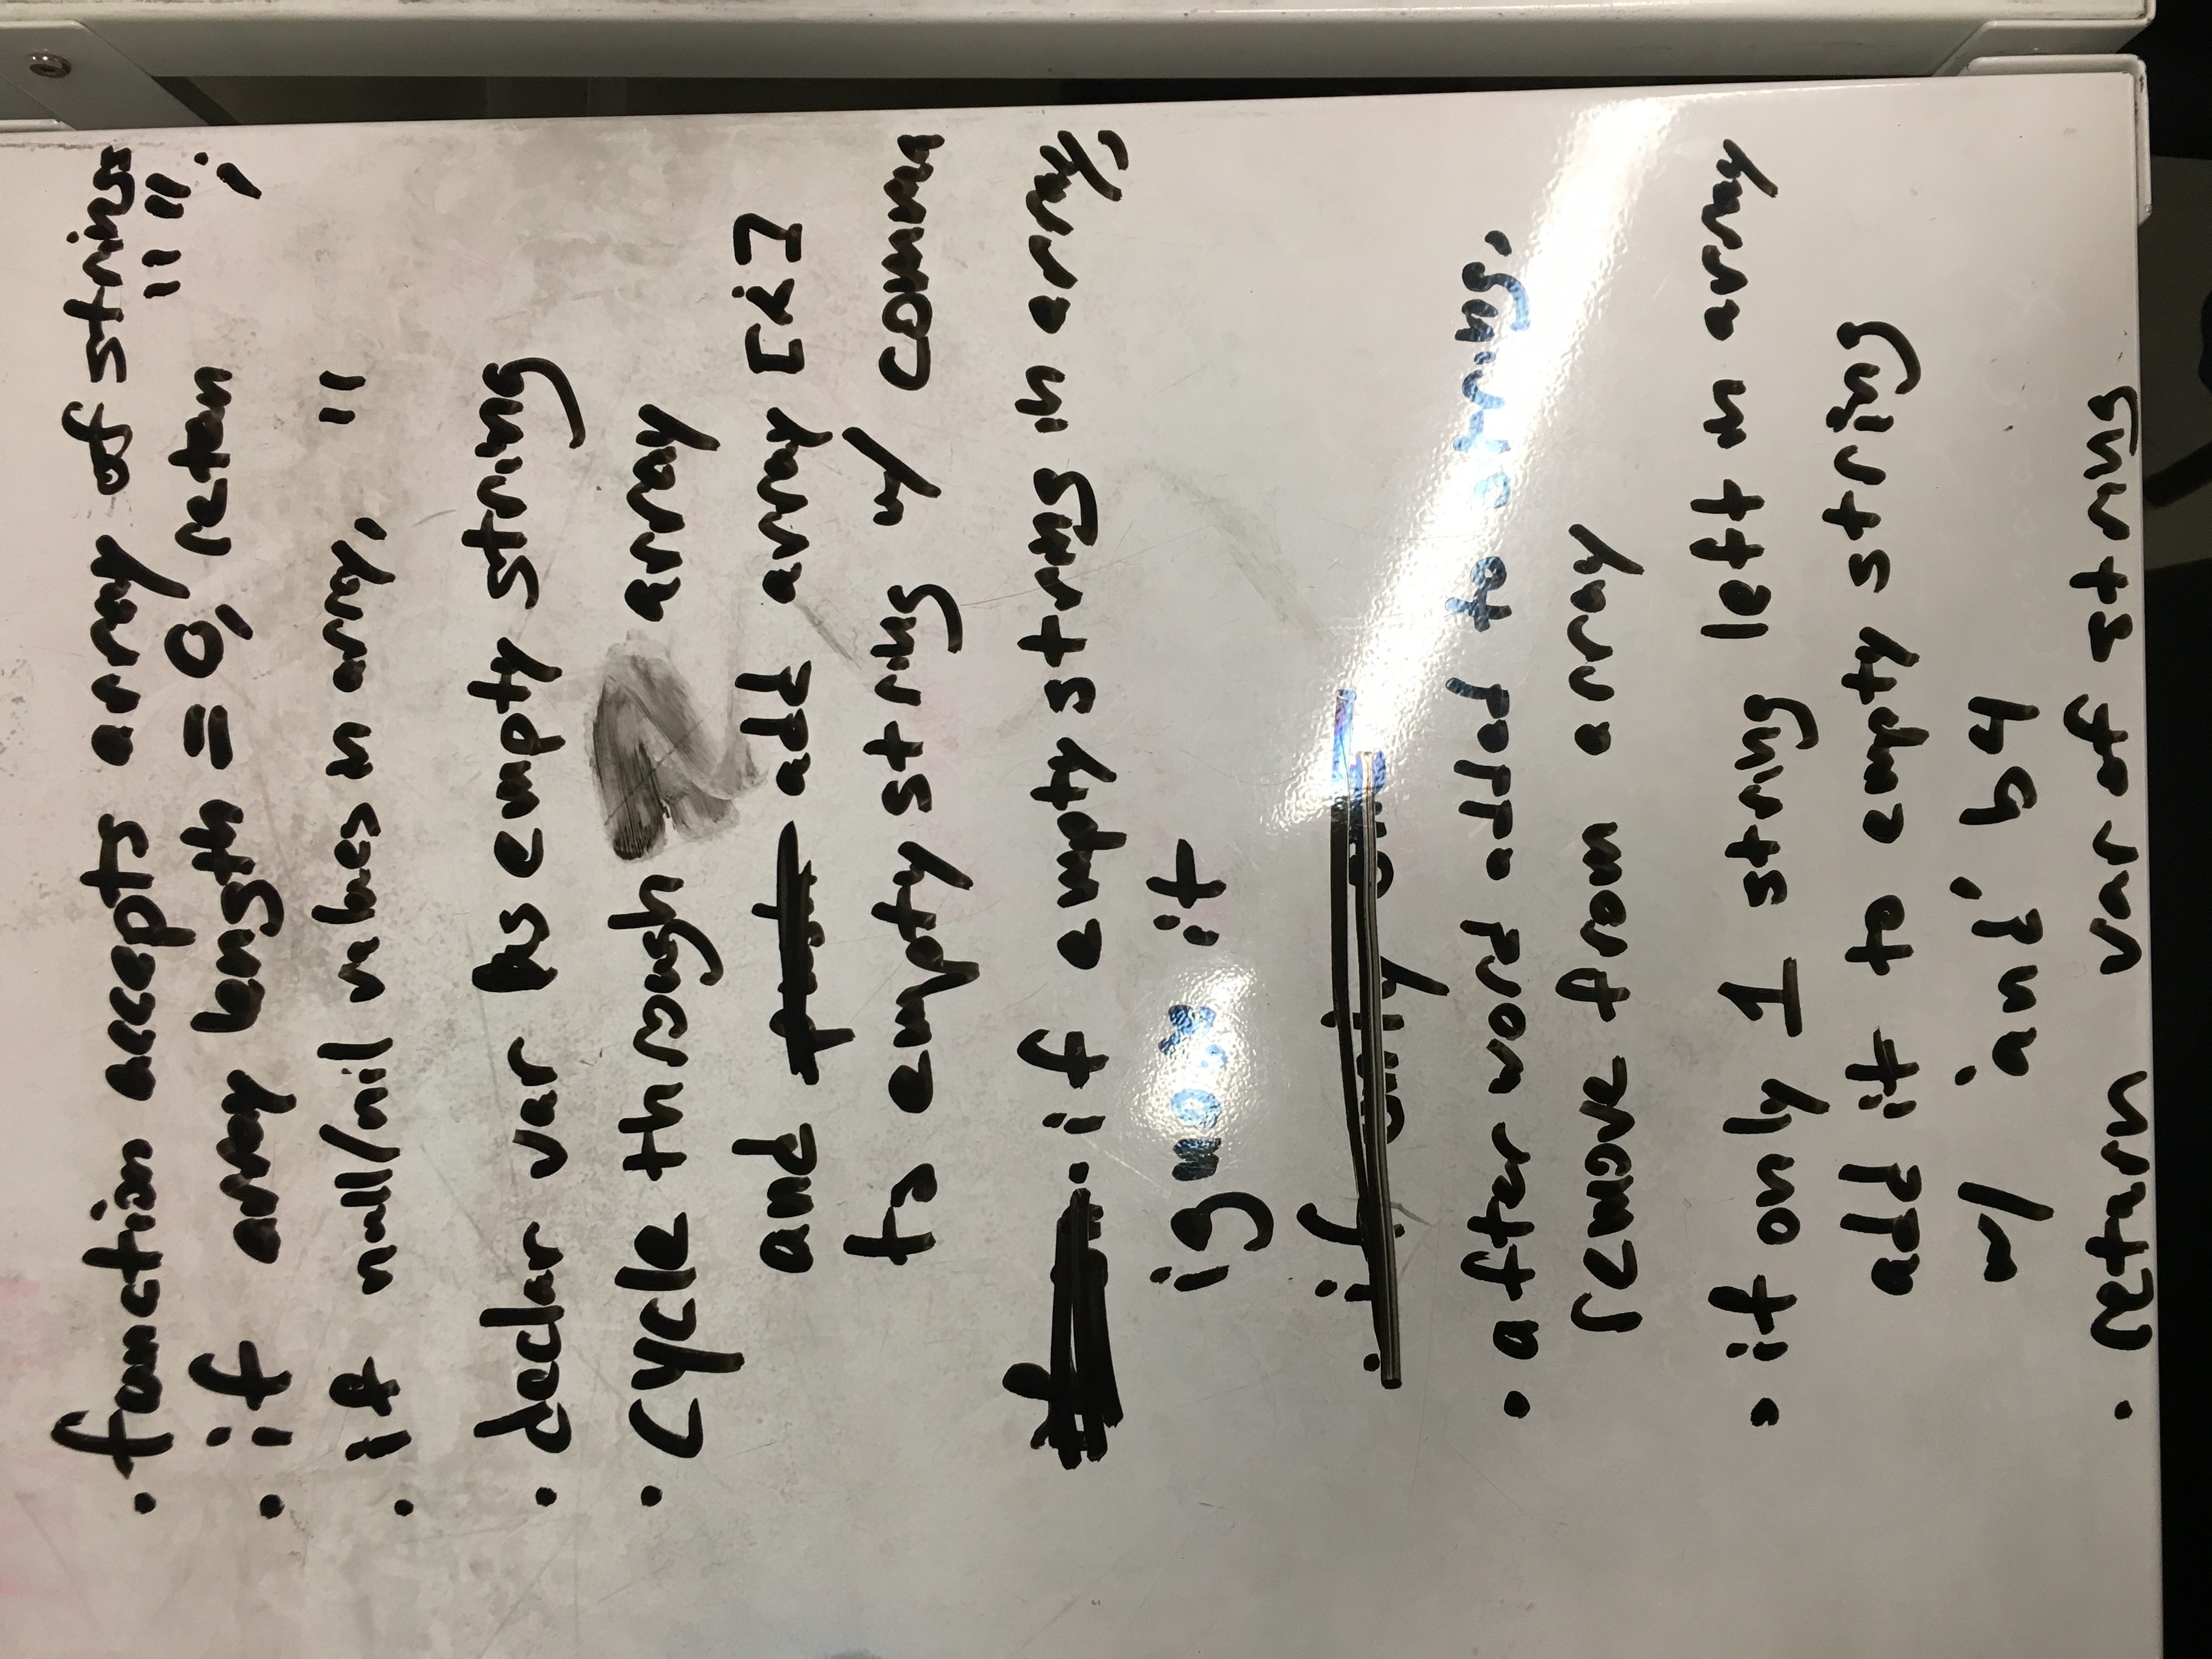 . function accepts array of strings
. if array length = 0, reten " ";
. if null/nil values in array, "
. declar var as empty string
. cycle through array
and push add array [i]
to empty string w/ comma
. if empty string in array,
ignore it
. if only one
. after word added to string,
remove from array
. if only 1 string left in array
add it to empty string
w/ 'and' b4
. return var of string